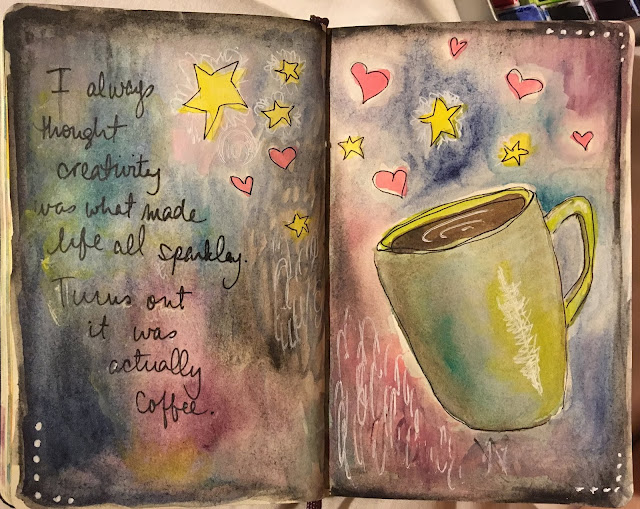 I always
thought
creativity
was what made
life all sparkley.
Turns out
it was
actually
Coffee.